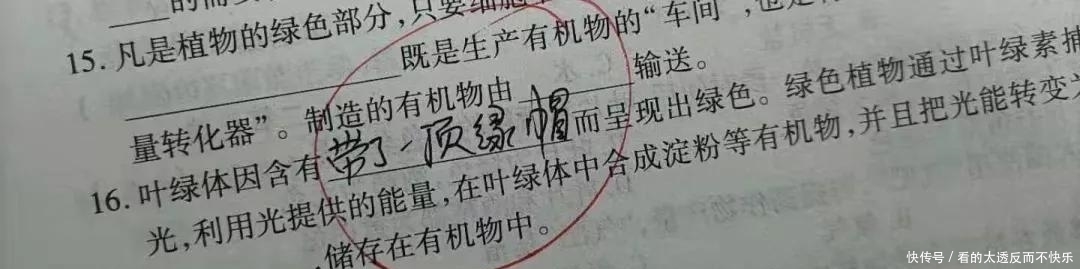 的需要
15. 凡是植物的绿色部分,只要细胞
既是生产有机物的“车间”,也是
量转化器”。制造的有机物由 输送。
16. 叶绿体因含有带了一顶绿帽而呈现出绿色。绿色植物通过叶绿素捕
光,利用光提供的能量,在叶绿体中合成淀粉等有机物,并且把光能转变为
,储存在有机物中。
快传号/看的太透反而不快乐